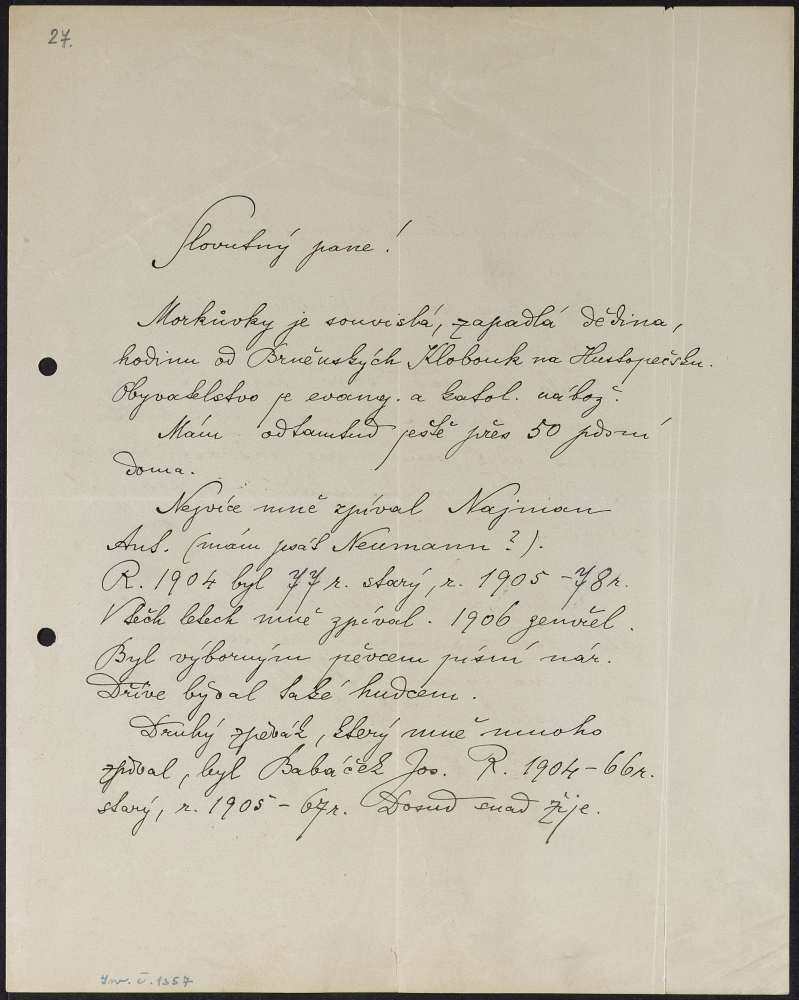 27.
Slovutný pane!
Morkůvky je souvislá, zapadlá dědina,
hodinu od Brněnských Klobouk na Hustopečsku.
Obyvatelstvo je evang. a katol. nábož.
Mám odtamtud ještě přes 50 písní
doma.
Nejvíce mně zpíval Najman
Ant. (mám psát Neumann?).
R. 1904 byl 77 r. starý, r. 1905 - 78 r.
V těch letech mně zpíval. 1906 zemřel.
Byl výborným pěvcem písní nár.
Dříve býval také hudcem.
Druhý zpěvák, který mně mnoho
zpíval, byl Babáček Jos. R. 1904 - 66 r.
starý, r. 1905 - 67 r. Dosud snad žije.
Inv. č. 1357